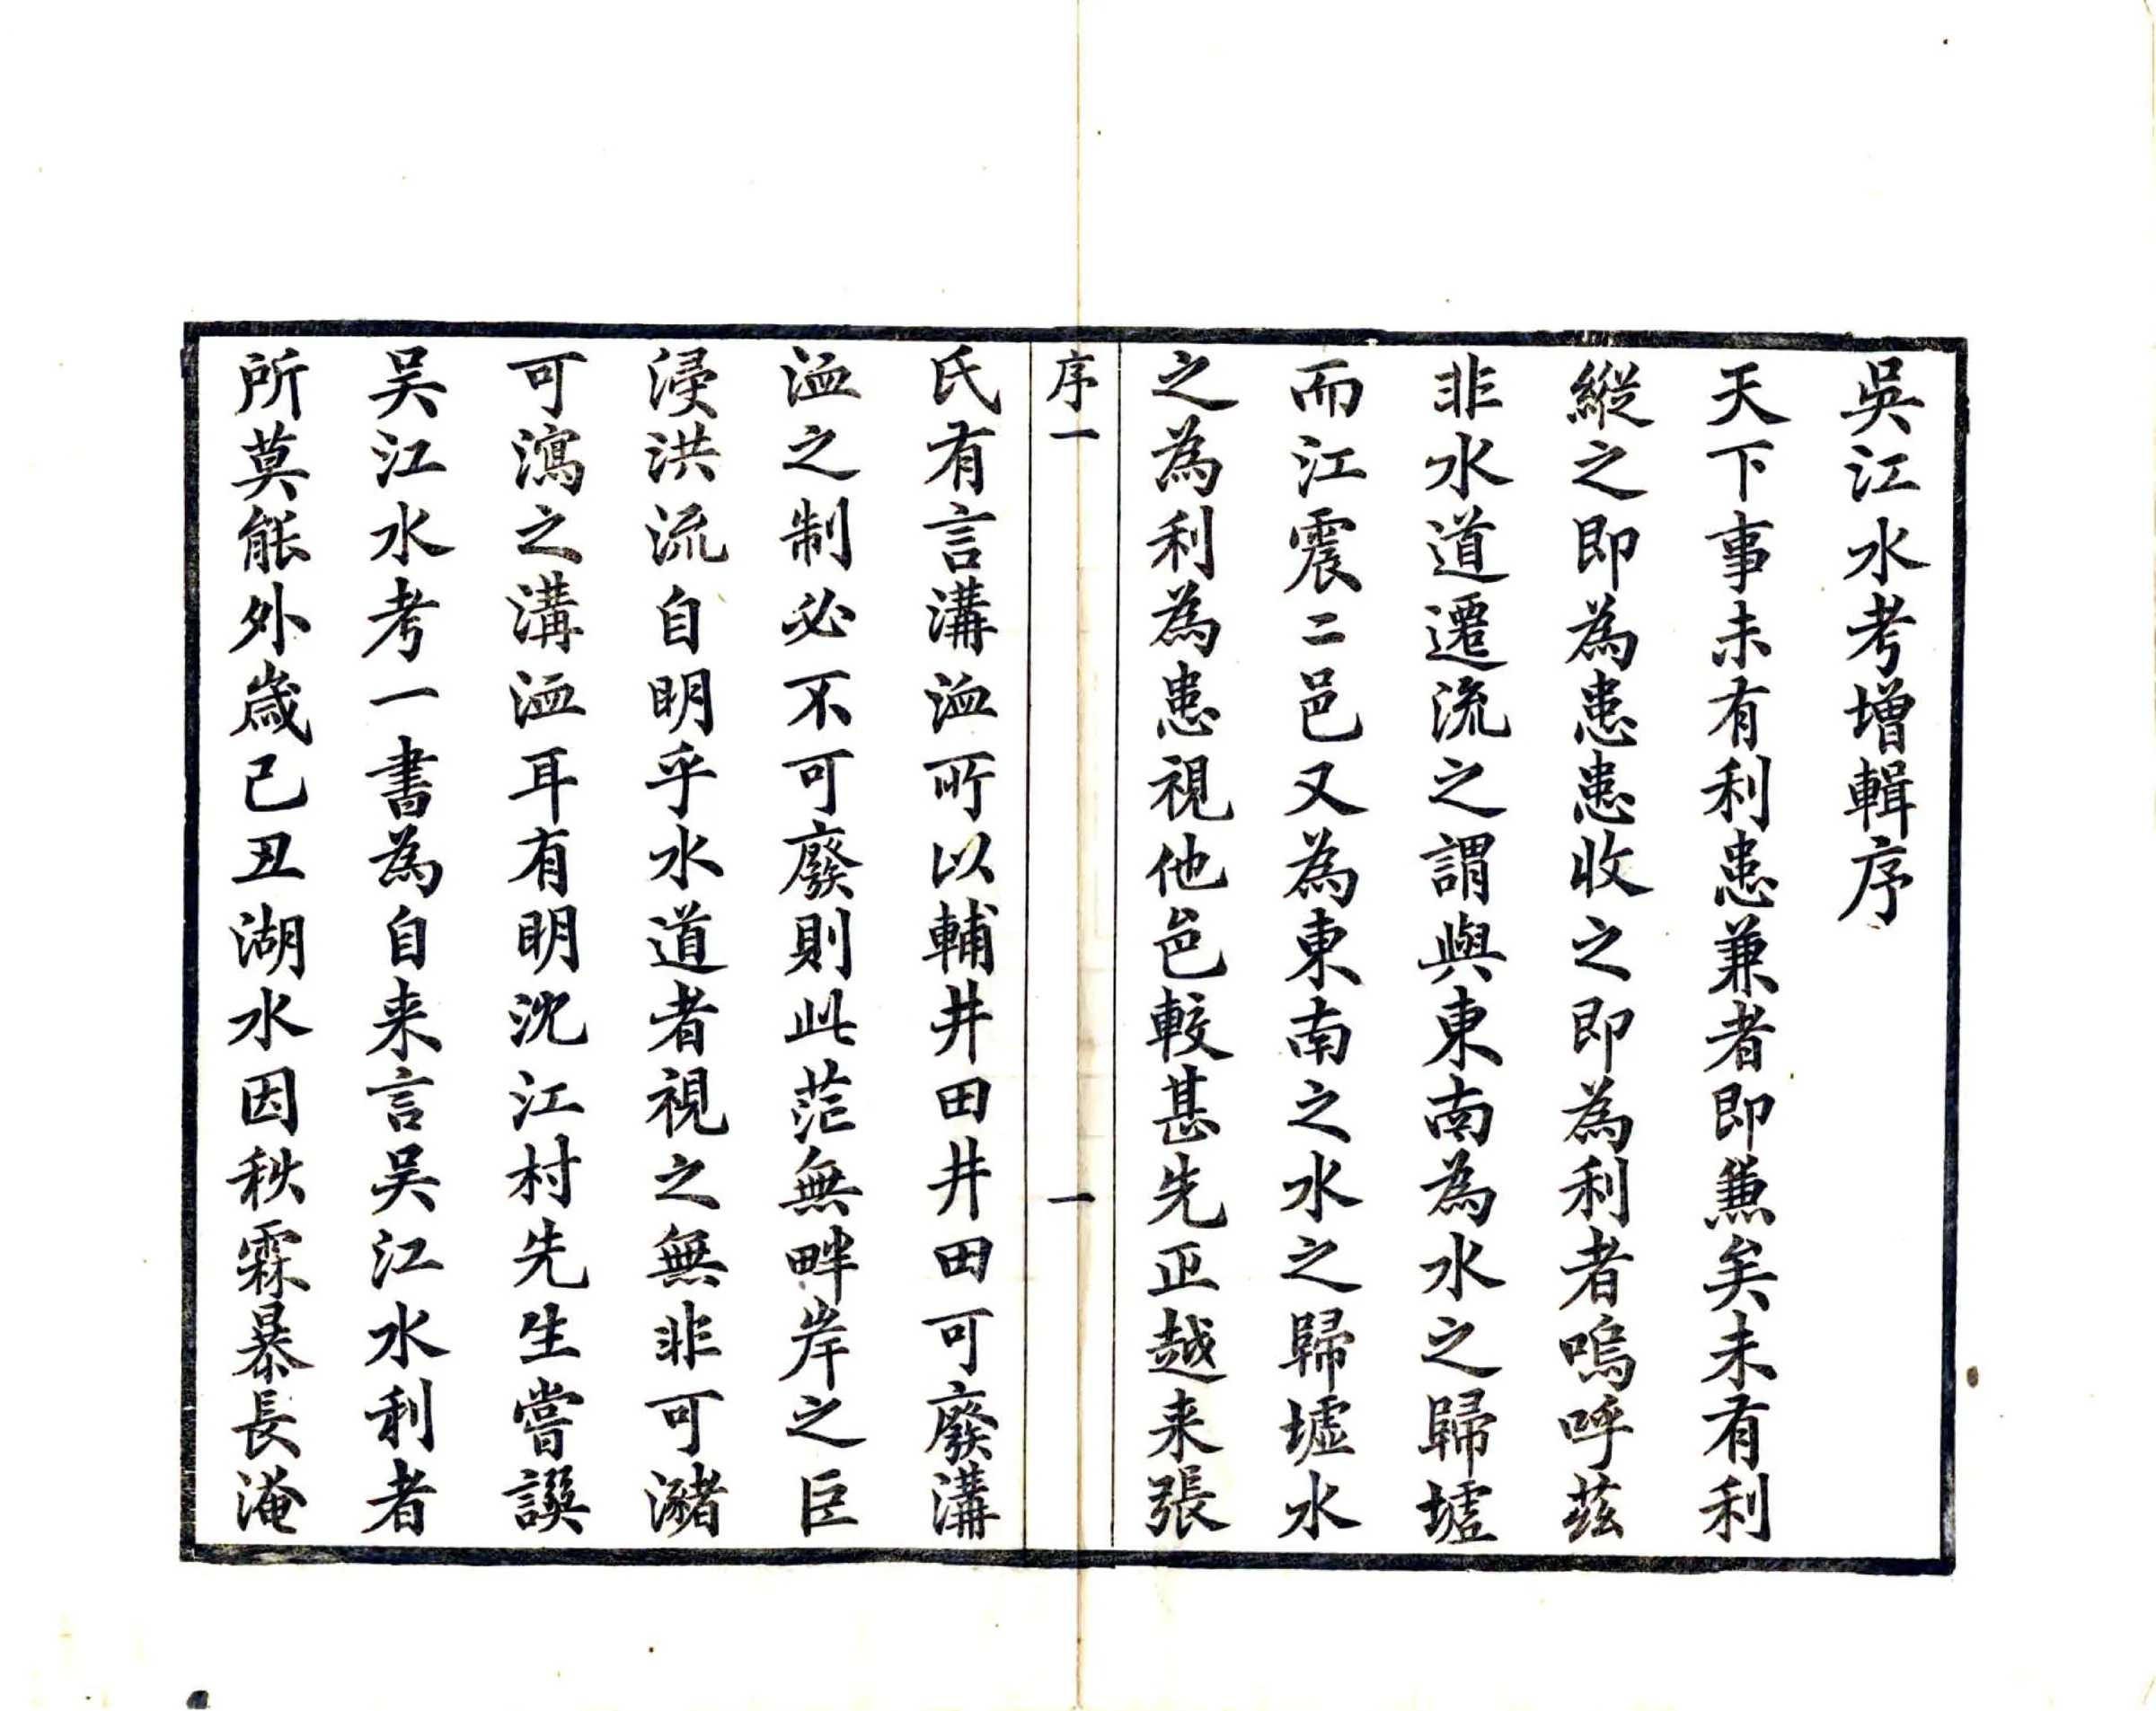 吳江水考增輯序
天下事未有利患兼者即無矣未有利
縱之即為患患收之即為利者嗚呼茲
非水道遷流之謂與東南為水之歸墟
而江震二邑又為東南之水之歸墟水
之為利為患視他邑較甚先正越来張
序一
一
氏有言溝洫所以輔井田井田可廢溝
洫之制必不可廢則此茫無畔岸之巨
浸洪流自明乎水道者視之無非可瀦
可瀉之溝洫耳有明沈江村先生嘗譔
吴江水考一書為自来言吴江水利者
所莫能外歲己丑湖水因秋霖暴長淹